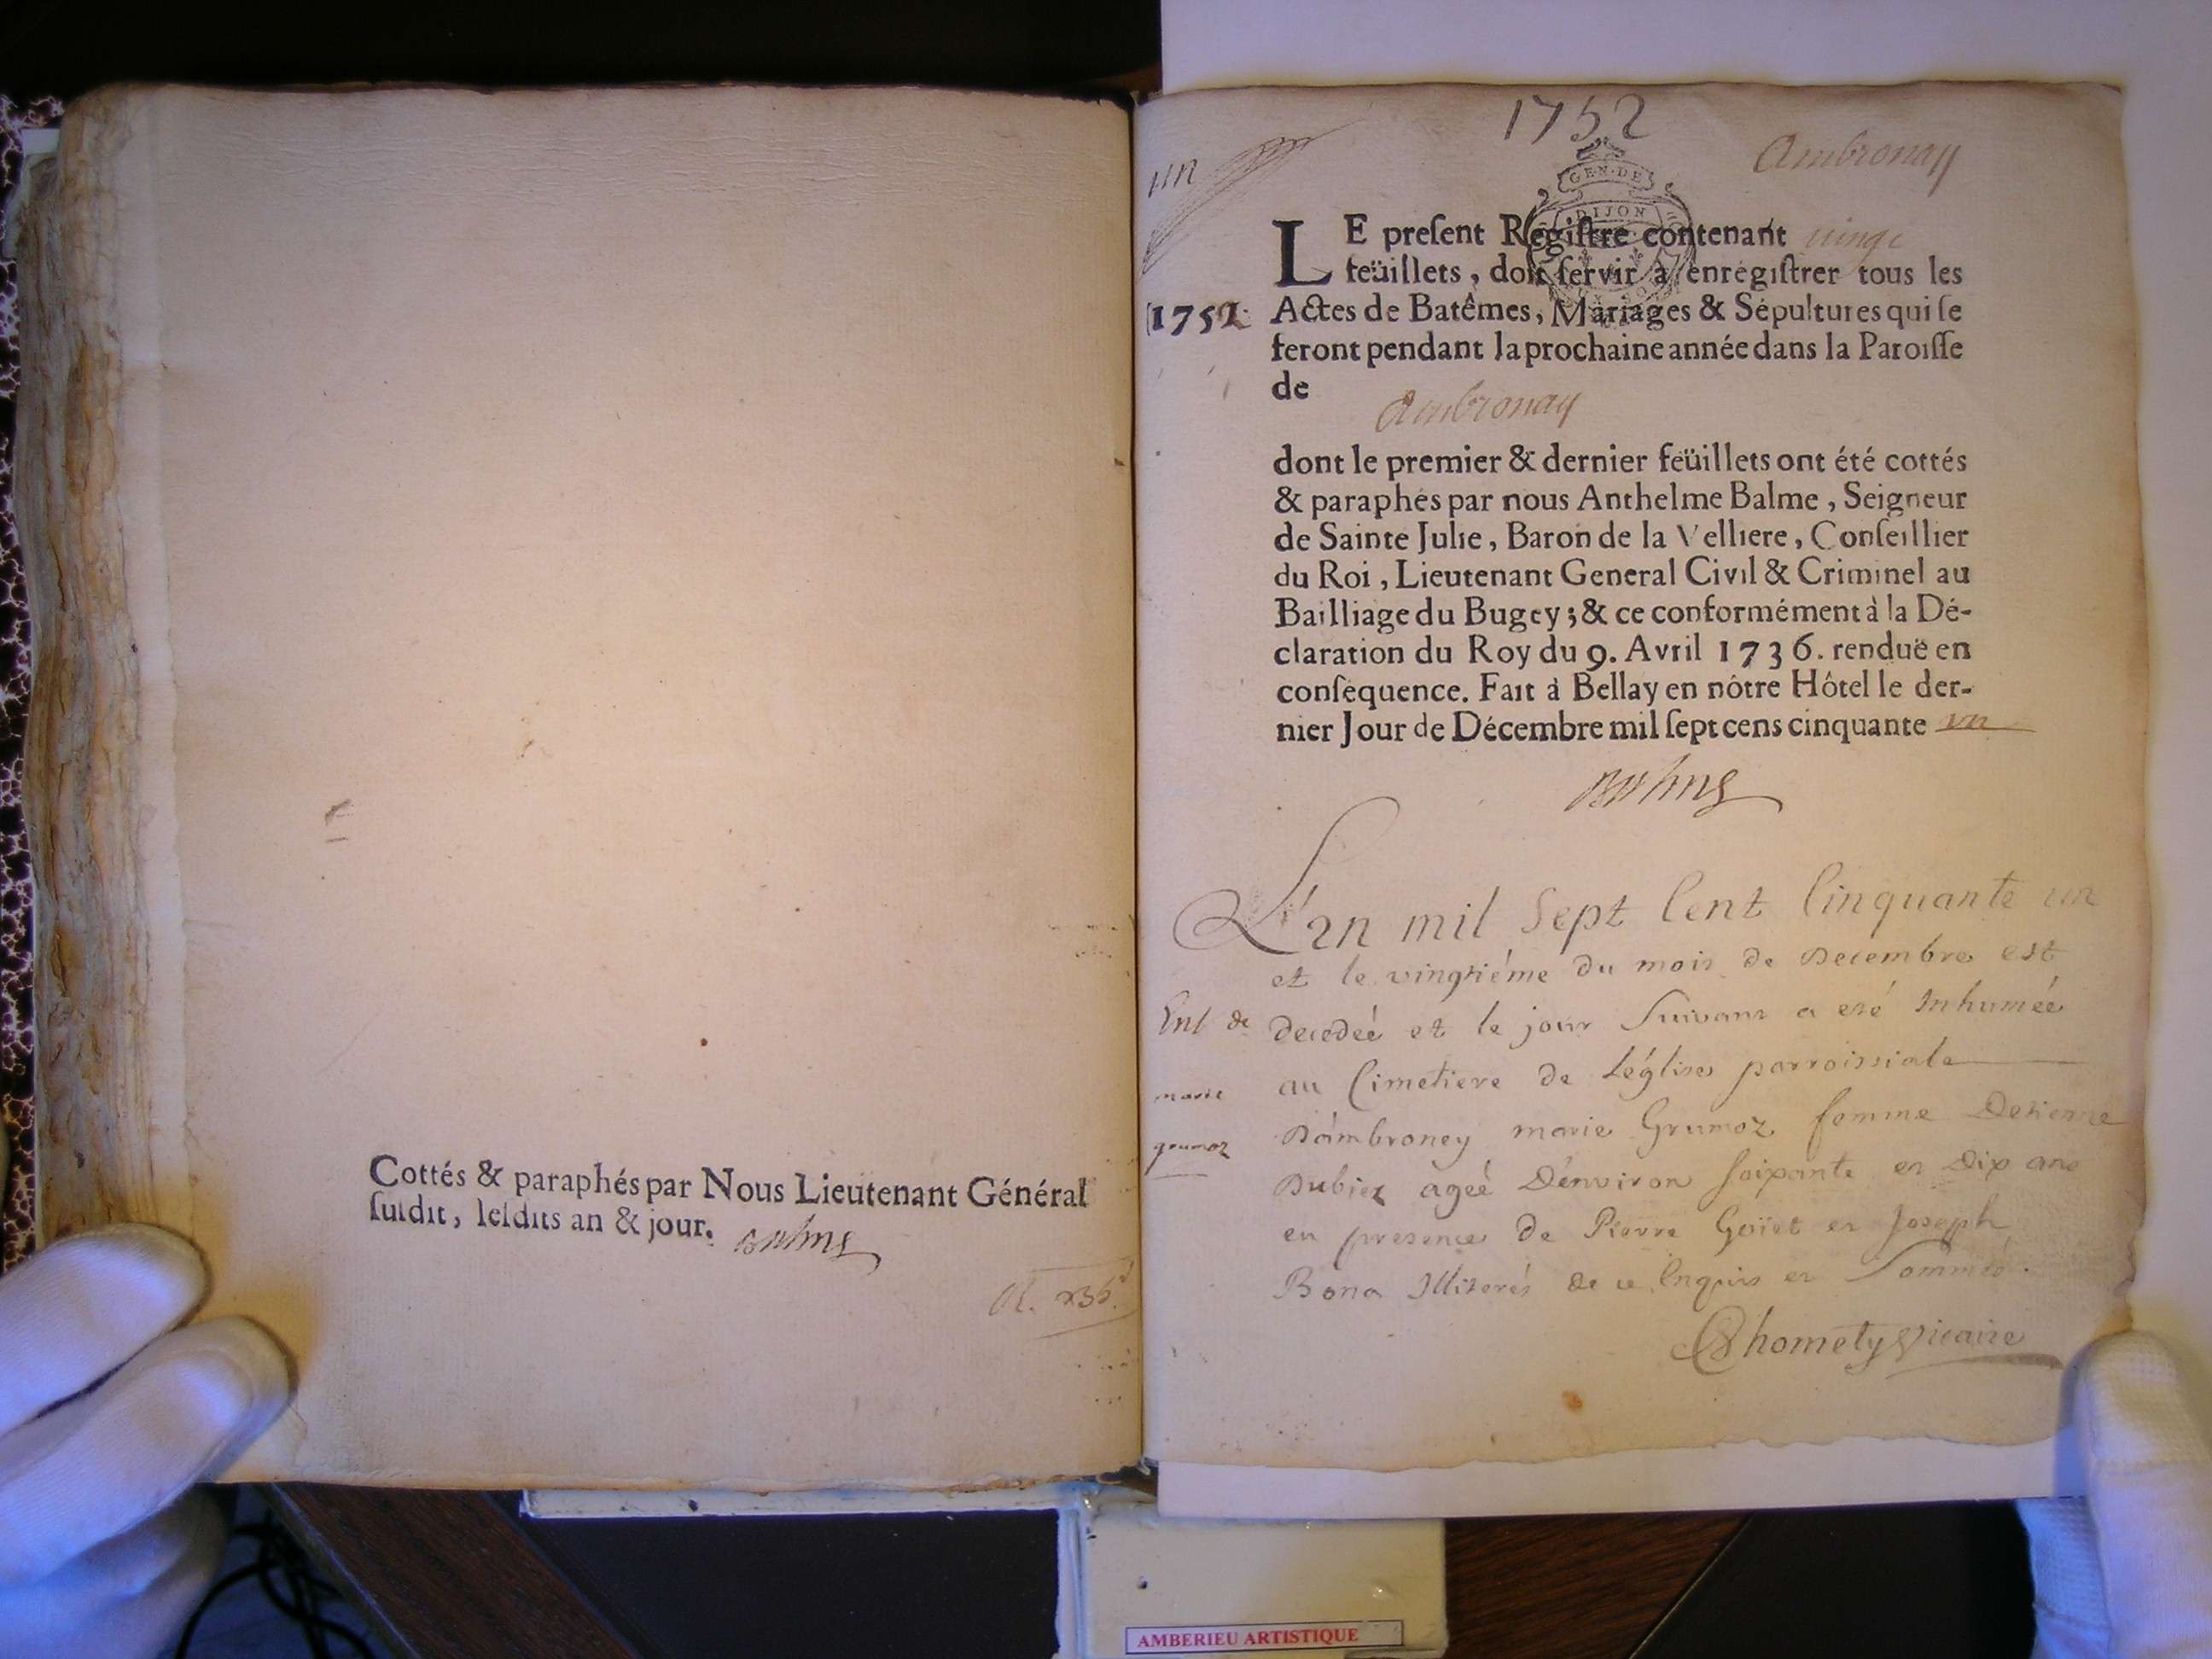 Cottés & paraphés par Nous Lieutenant Général
susdit, lesdits an & jour.
Balme
1752
un
Ambronay
GEN·DE
DIJON
LE present Registre contenant vingt
feüillets, doit servir à enregistrer tous les
1752
Actes de Batêmes, Mariages & Sépultures qui se
feront pendant la prochaine année dans la Paroisse
de
Ambronay
dont le premier & dernier feüillets ont été cottés
& paraphés par nous Anthelme Balme, Seigneur
de Sainte Julie, Baron de la Velliere, Conseillier
du Roi, Lieutenant General Civil & Criminel au
Bailliage du Bugey; & ce conformément à la Dé-
claration du Roy du 9. Avril 1736. renduë en
conséquence. Fait à Bellay en nôtre Hôtel le der-
nier Jour de Décembre mil sept cens cinquante un
Balme
L'an mil Sept Cent Cinquante un
et le vingtiéme du mois de Decembre est
Ent de
decedeé et le jour Suivant a eté Inhumeé
au Cimetiere de Léglise parroissiale
marie
Dámbroney marie Grumoz femme Detienne
grumoz
Dubiez ageé Dénviron soixante et Dix ans
en presence de Pierre Goiet et Joseph
Bona Illiterés de ce Enquis et Sommés.
Chomety vicaire
AMBERIEU ARTISTIQUE